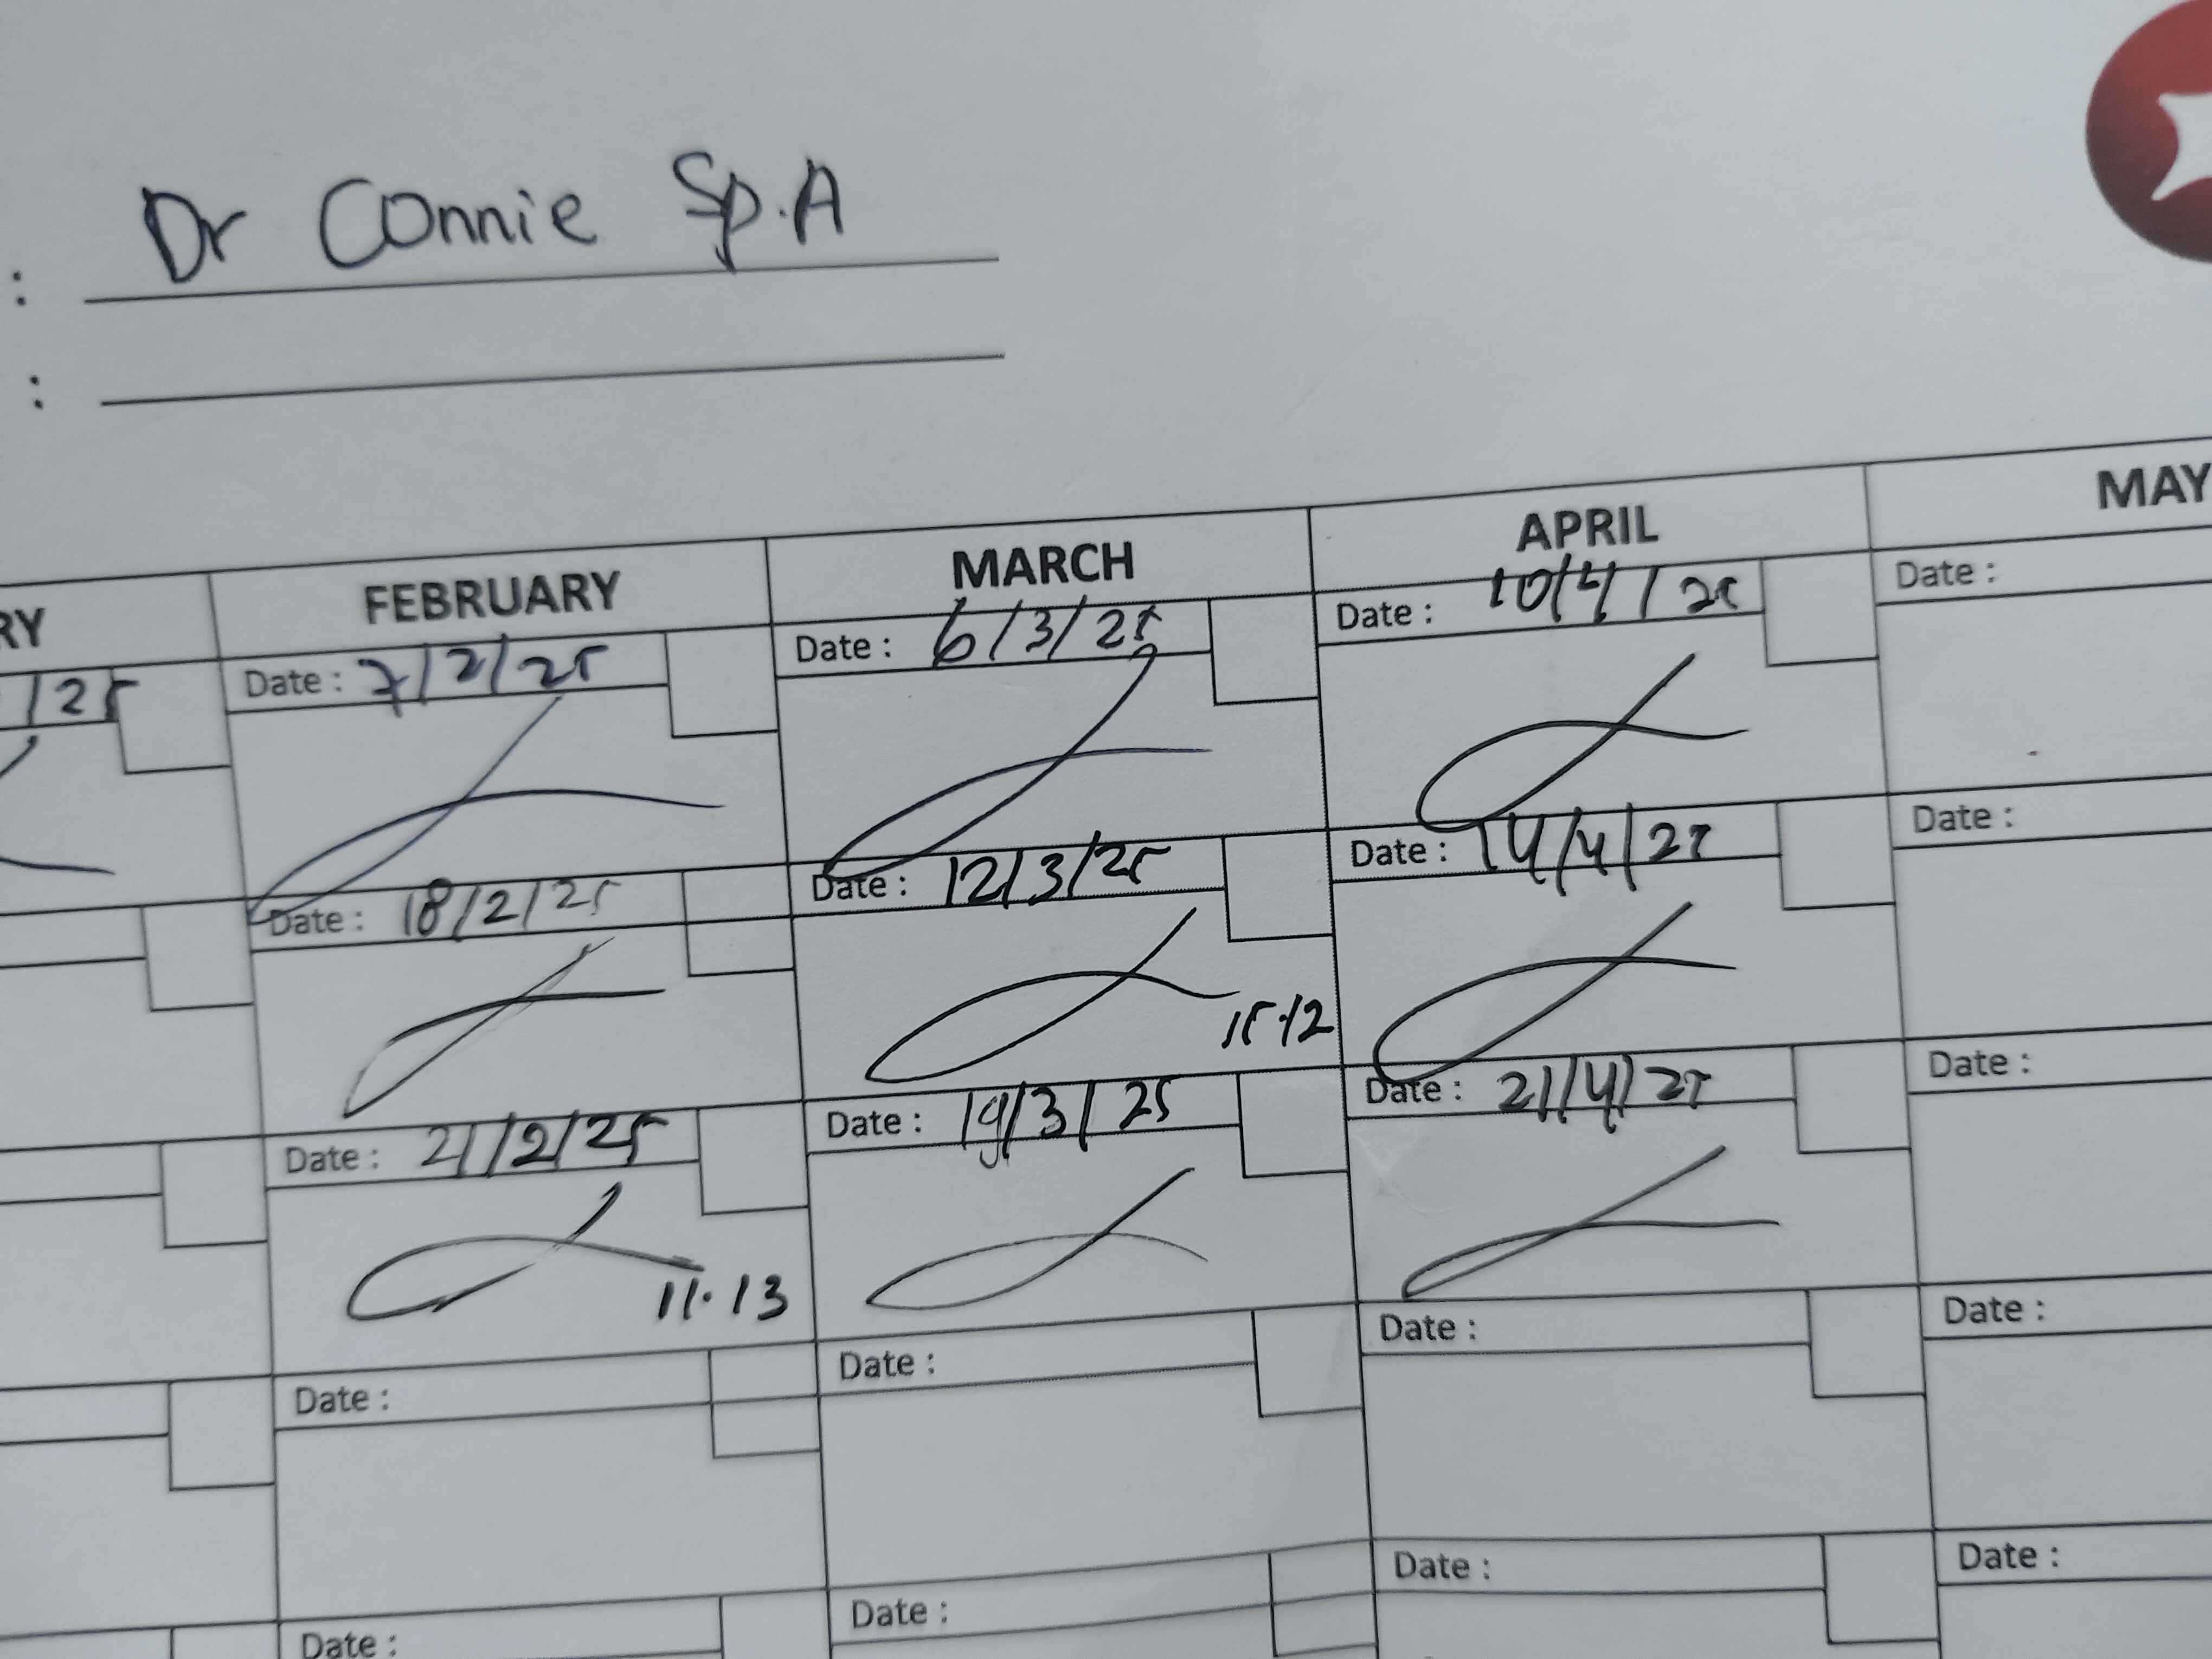 : Dr Connie Sp.A
:
RY FEBRUARY MARCH APRIL MAY
/25 Date : 7/2/25 Date : 6/3/25 Date : 10/4/25 Date :
Date : 18/2/25 Date : 12/3/25 Date : 14/4/25 Date :
15.12
Date : 21/2/25 Date : 19/3/25 Date : 21/4/25 Date :
11.13
Date : Date : Date : Date :
Date : Date : Date : Date :